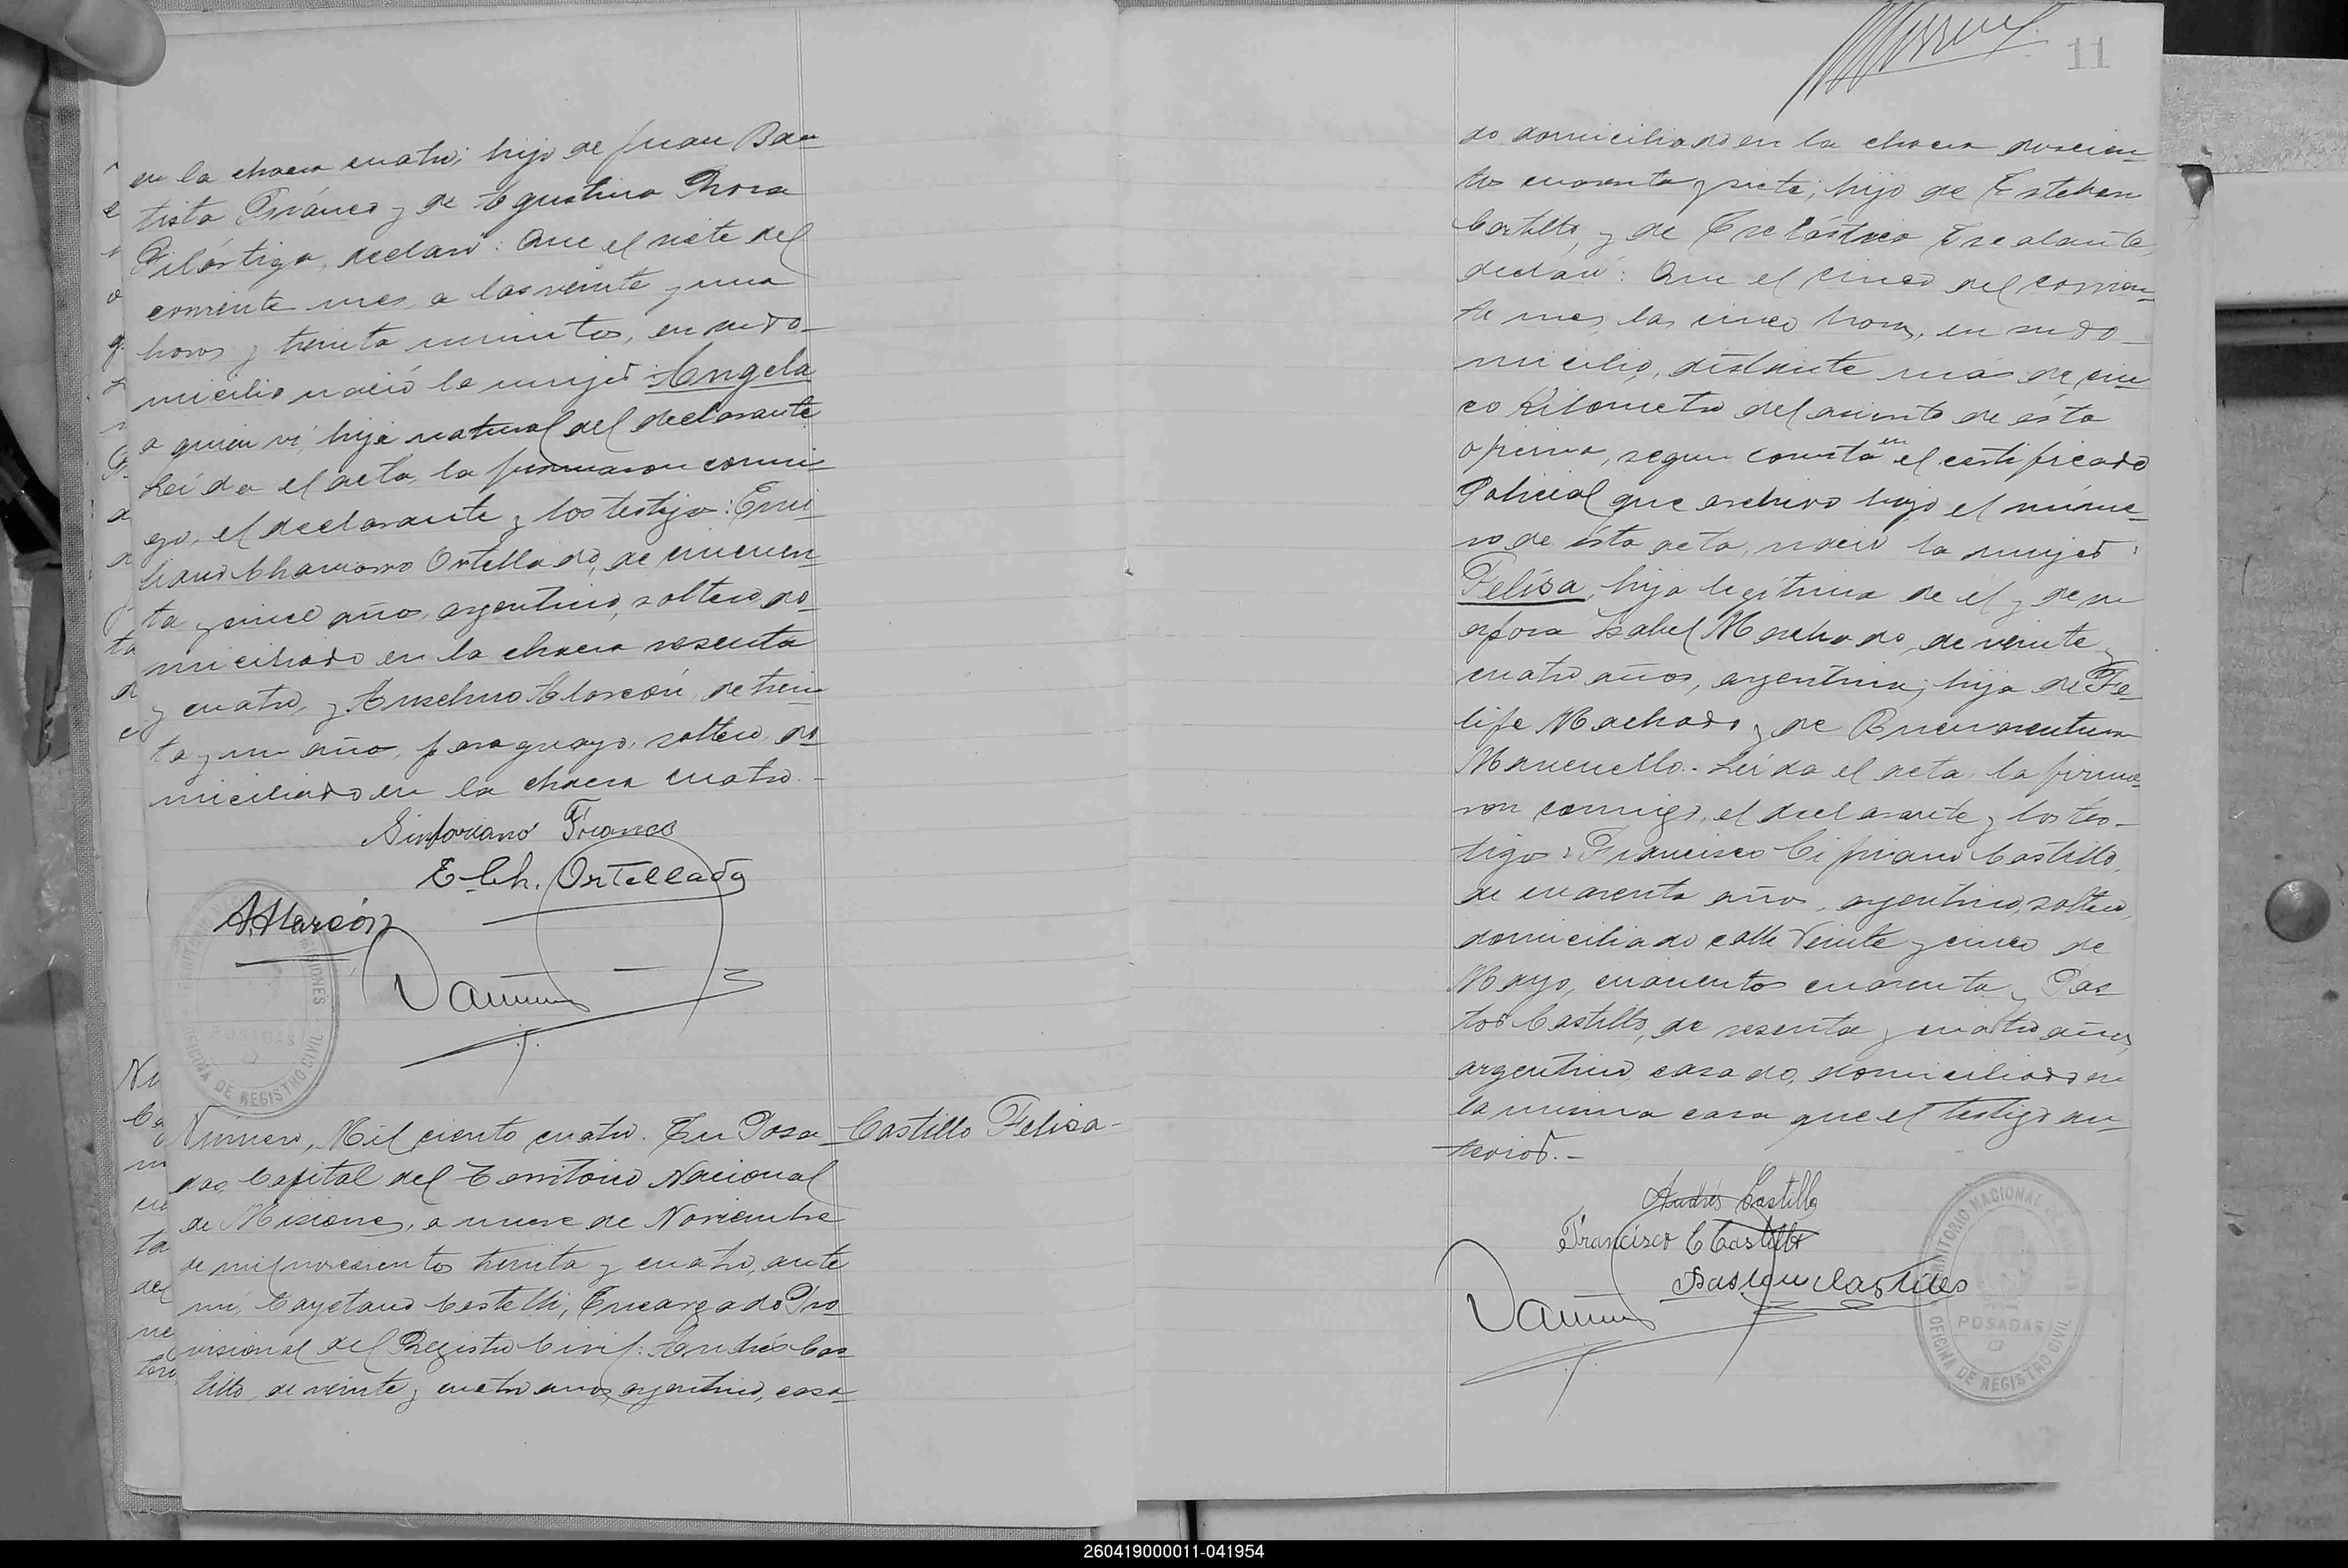 en la chacra cuatro; hijo de Juan Bau
tista Franco y de Agustina Rosa
declaró: Que el siete del
corriente mes, a las veinte y una
horas y treinta minutos, en su do-
micilio nació la mujer: Angela
a quien vi, hija natural del declarante
Leída el acta, la firmaron conmi-
go, el declarante y los testigos: Emi-
liano Chamorro Ortellado, de cincuen-
ta y cinco años, argentino, soltero, do-
miciliado en la chacra sesenta
y cuatro, y Anselmo Alarcón, de trein
ta y un año, paraguayo, soltero, do-
miciliado en la chacra cuatro.-
Sinforiano Franco
E. Ch. Ortellado
A. Alarcón
TERRITORIO NACIONAL DE MISIONES
POSADAS
OFICINA DE REGISTRO CIVIL
Número, Mil ciento cuatro. En Posa-
Castillo Felisa-
das, Capital del Territorio Nacional
de Misiones, a nueve de Noviembre
de mil novecientos treinta y cuatro, ante
mí, Cayetano Castelli, Encargado Pro-
visional del Registro Civil: Andrés Cas-
tillo, de veinte y cuatro años, argentino, casa-
11
do, domiciliado en la chacra doscien-
tos cuarenta y siete; hijo de Esteban
Castillo, y de Escolástica Escalante,
declaró: Que el cinco del corrien-
te mes, las cinco horas, en su do-
micilio, distante más de cin-
co kilometro del asiento de ésta
oficina, segun consta en el certificado
Policial que archivo bajo el núme-
ro de ésta acta, nació la mujer:
Felisa, hija legítima de él y de su
esposa Isabel Machado, de veinte y
cuatro años, argentina; hija de Fe-
lipe Machado y de Buenaventura
Mancuello.- Leída el acta, la firma-
ron conmigo, el declarante y los tes-
tigos: Francisco Cipriano Castillo,
de cuarenta años, argentino, soltero,
domiciliado calle Veinte y cinco de
Mayo, cuatrocientos cuarenta y Pas
tor Castillo, de sesenta y cuatro años,
argentino, casado, domiciliado en
la misma casa que el testigo an-
terior.-
Andrés Castillo
Francisco C Castillo
TERRITORIO NACIONAL DE
POSADAS
OFICINA DE REGISTRO CIVIL
260419000011-041954